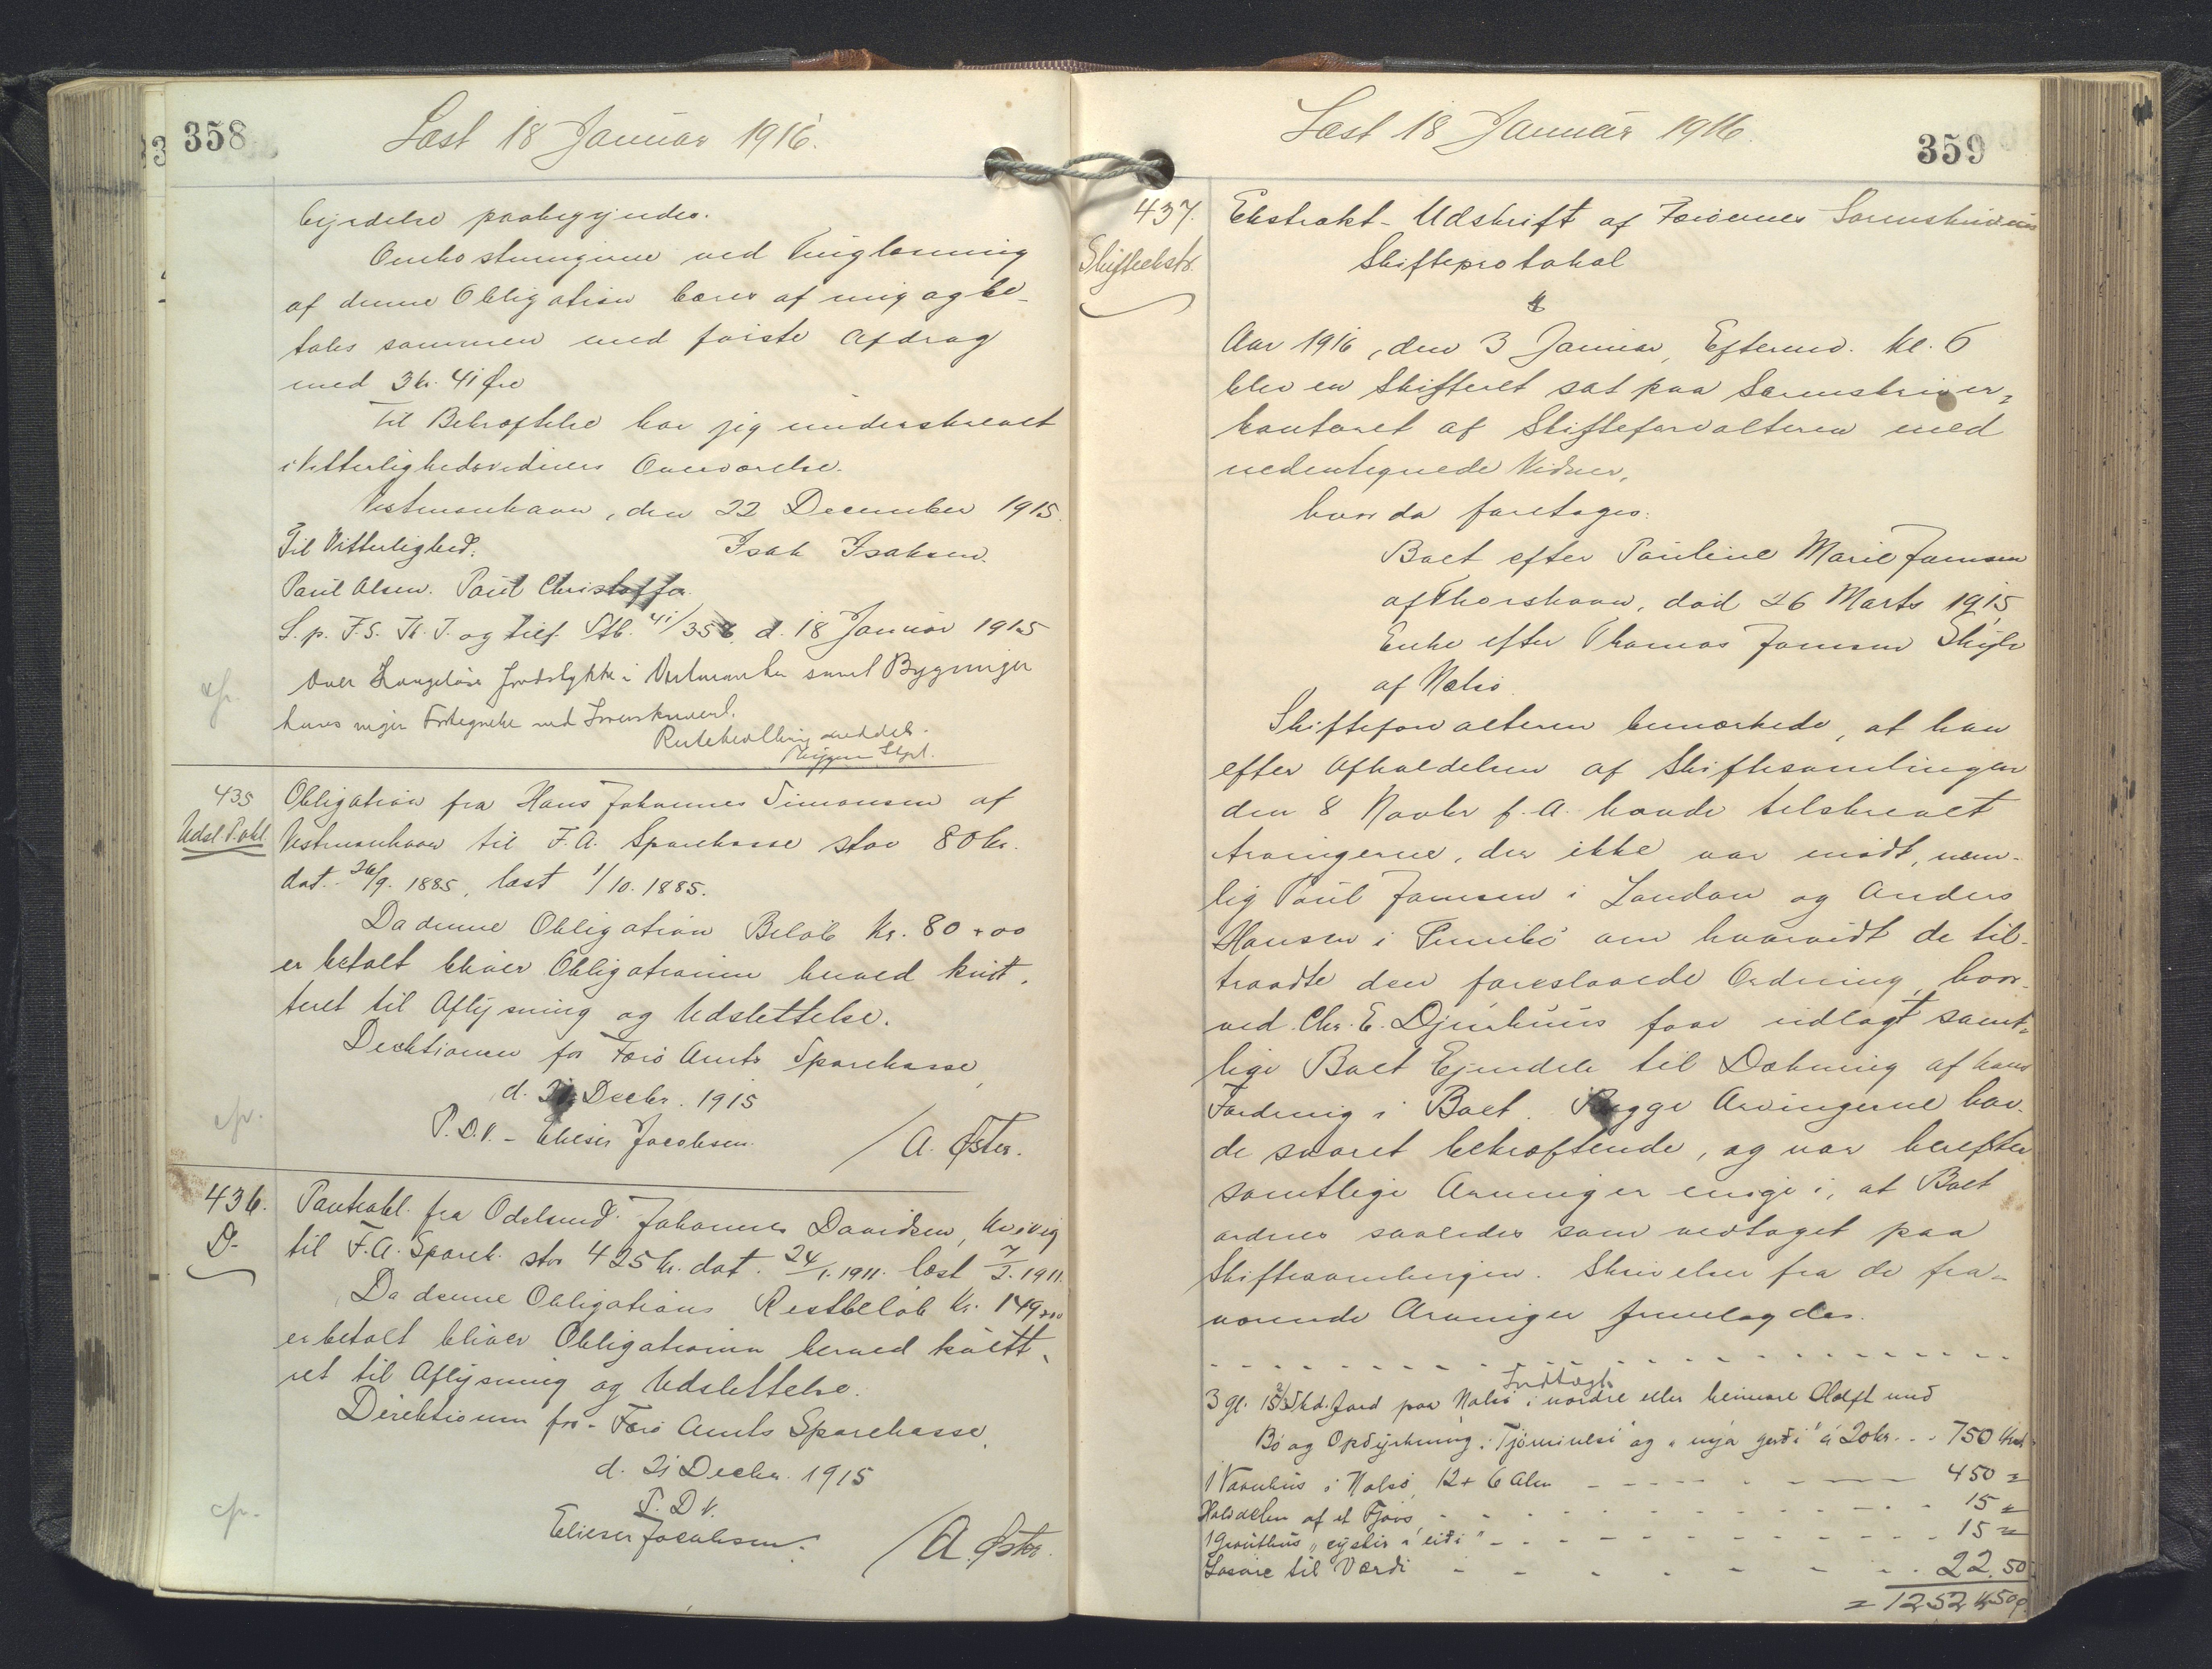 358
Læst 18 Januar 1916.
byrdelse paabegyndes.
Omkostningerne ved Tinglæsning
af denne Obligation bæres af mig og be-
tales sammen med første Afdrag
med 3 kr. 41 Øre
Til Bekræftelse har jeg underskrevet
i Vitterlighedsvidners Overværelse.
Vestmanhavn, den 22 December 1915.
Til Vitterlighed: Isak Isaksen.
Paul Olsen. Poul Christoffer
S. p. F. S. K. T. og tilf. Stb. 41/358 d. 18 Januar 1915
over Jordstykke i samt Bygninger
haves ingen med
meddelt.
435 Obligation fra Hans Johannes Simonsen af
Udsl. P. obl. Vestmanhavn til F. A. Sparekasse stor 80 kr.
dat. 26/9. 1885, læst 1/10. 1885.
Da denne Obligation Beløb Kr. 80 + 00
er betalt bliver Obligationen herved kvit-
teret til Aflysning og Udslettelse.
Direktionen for Færø Amts Sparekasse,
d. 21 Decbr. 1915
P. D. V. - Elieser Jacobsen. / A. Øster.
cfr.
436. Panteobl. fra Odelsmd. Johannes Davidsen, Kvivig
D- til F. A. Sparek. stor 425 kr. dat. 24/1. 1911. læst 7/2. 1911.
Da denne Obligations Restbeløb Kr. 149 + 00
er betalt bliver Obligationen herved kvitt-
ret til Aflysning og Udslettelse.
Direktionen for - Færø Amts Sparekasse,
d. 21 Decbr. 1915
P. D. V.
Elieser Jacobsen. / A. Øster.
cfr.
Læst 18 Januar 1916.
359
437. Ekstrakt-Udskrift af Færøernes Sorenskriveries
Skifteekstr. Skifteprotokol
Aar 1916, den 3 Januar, Efterm. kl. 6
blev en Skifteret sat paa Sorenskriver-
kontoret af Skifteforvalteren med
nedentegnede Vidner,
hvor da foretoges:
Boet efter Pauline Marie Joensen
af Thorshavn, død 26 Marts 1915,
Enke efter Thomas Joensen Skyle
af Nolsø.
Skifteforvalteren bemærkede, at han
efter Afholdelsen af Skiftesamlingen
den 8 Novbr f. A. havde tilskrevet
Arvingerne, der ikke var mødt, nem-
lig Poul Joensen i London og Anders
Hansen i om hvorvidt de til-
traadte den foreslaaede Ordning, hvor-
ved Chr. E. Djurhuus faar udlagt samt-
lige Boet Ejendele til Dækning af hans
Fordring i Boet. Begge Arvingerne hav-
de svaret bekræftende, og var herefter
samtlige Arvinger enige i, at Boet
ordnes saaledes som vedtaget paa
Skiftesamlingen. Skrivelser fra de fra-
værende Arvinger fremlagdes.
Indtægt
3 gl. 15 2/5 Skd. Jord paa Nolsø i nordre eller heimare Helft med
Bø og Opdyrkning i og "nýja gerði" á 20 kr. . . 750 Kr
1 Vaanhus i Nolsø, 12 + 6 Alen - - - 450 =
Halvdelen af et Fjøs - - - 15 =
1 Grouthus "eystir á eiði" - - - 15 =
Løsøre til Værdi - - - 22,50
= 1252 kr 50 ø.